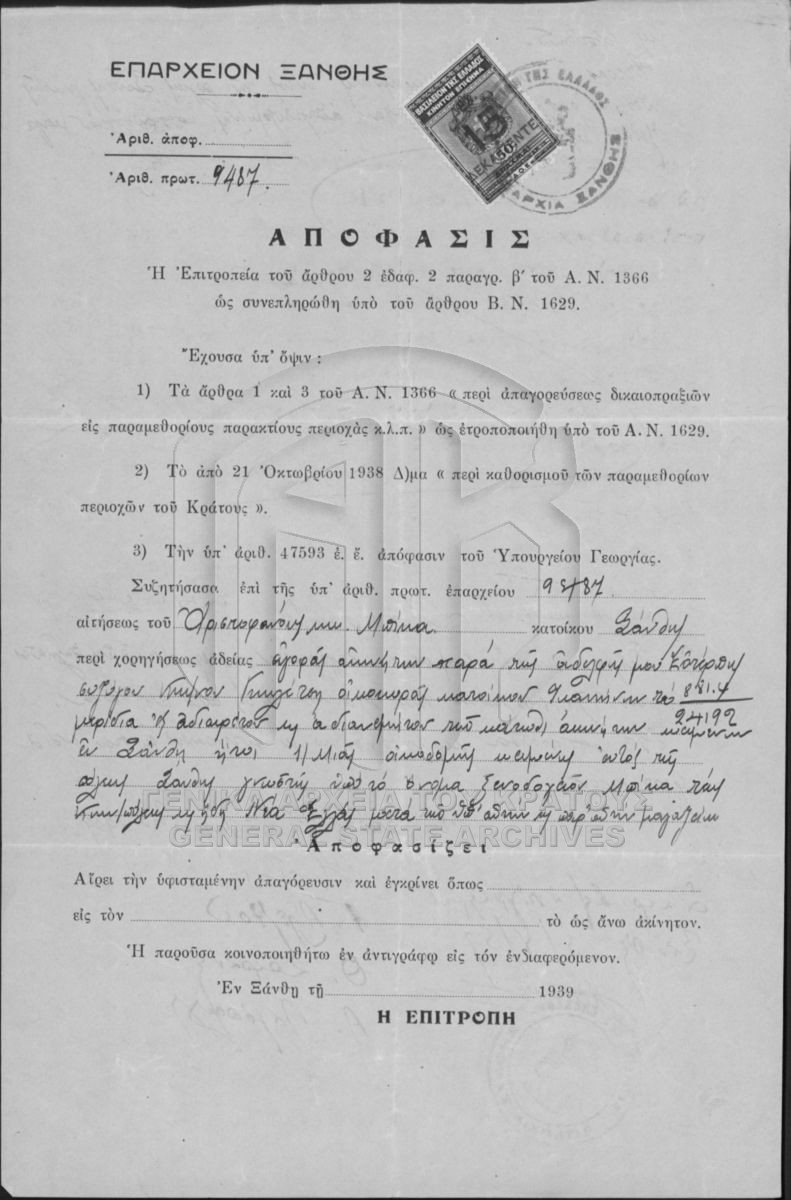 ΕΠΑΡΧΕΙΟΝ ΞΑΝΘΗΣ
Ἀριθ. ἀποφ.
Ἀριθ. πρωτ. 9487.
ΒΑΣΙΛΕΙΟΝ ΤΗΣ ΕΛΛΑΔΟΣ
ΚΙΝΗΤΟΝ ΕΠΙΣΗΜΑ
15
ΔΕΚΑΠΕΝΤΕ
50
ΤΗΣ ΕΛΛΑΔΟΣ
ΕΠΑΡΧΙΑ ΞΑΝΘΗΣ
ΑΠΟΦΑΣΙΣ
Ἡ Ἐπιτροπεία τοῦ ἄρθρου 2 ἐδαφ. 2 παραγρ. β΄ τοῦ Α. Ν. 1366
ὡς συνεπληρώθη ὑπὸ τοῦ ἄρθρου Β. Ν. 1629.
Ἔχουσα ὑπ' ὄψιν :
1) Τὰ ἄρθρα 1 καὶ 3 τοῦ Α. Ν. 1366 « περὶ ἀπαγορεύσεως δικαιοπραξιῶν
εἰς παραμεθορίους παρακτίους περιοχὰς κ.λ.π. » ὡς ἐτροποποιήθη ὑπὸ τοῦ Α. Ν. 1629.
2) Τὸ ἀπὸ 21 Ὀκτωβρίου 1938 Δ)μα « περὶ καθορισμοῦ τῶν παραμεθορίων
περιοχῶν τοῦ Κράτους ».
3) Τὴν ὑπ' ἀριθ. 47593 ἐ. ἔ. ἀπόφασιν τοῦ Ὑπουργείου Γεωργίας.
Συζητήσασα ἐπὶ τῆς ὑπ' ἀριθ. πρωτ. ἐπαρχείου 9487
αἰτήσεως τοῦ Ἀριστοφάνους Μπίκα κατοίκου Ξάνθης
περὶ χορηγήσεως ἀδείας ἀγορᾶς παρὰ τῆς ἀδελφῆς μου Εὐτέρπης
συζύγου κατοίκου Ἰωαννίνων τὰ 881.4
24192
μερίδια ἐξ ἀδιαιρέτου τῶν κάτωθι
ἐν Ξάνθῃ ἤτοι 1) Μιᾶς οἰκοδομῆς κειμένης ἐντὸς τῆς
πόλεως Ξάνθης γνωστῆς ὑπὸ τὸ ὄνομα ξενοδοχεῖον Μπίκα
ἤδη Νέα Ἑλλὰς μετὰ τῶν
ΓΕΝΙΚΑ ΑΡΧΕΙΑ ΤΟΥ ΚΡΑΤΟΥΣ
GENERAL STATE ARCHIVES
Ἀποφασίζει
Αἴρει τὴν ὑφισταμένην ἀπαγόρευσιν καὶ ἐγκρίνει ὅπως
εἰς τὸν τὸ ὡς ἄνω ἀκίνητον.
Ἡ παροῦσα κοινοποιηθήτω ἐν ἀντιγράφῳ εἰς τόν ἐνδιαφερόμενον.
Ἐν Ξάνθῃ τῇ 1939
Η ΕΠΙΤΡΟΠΗ